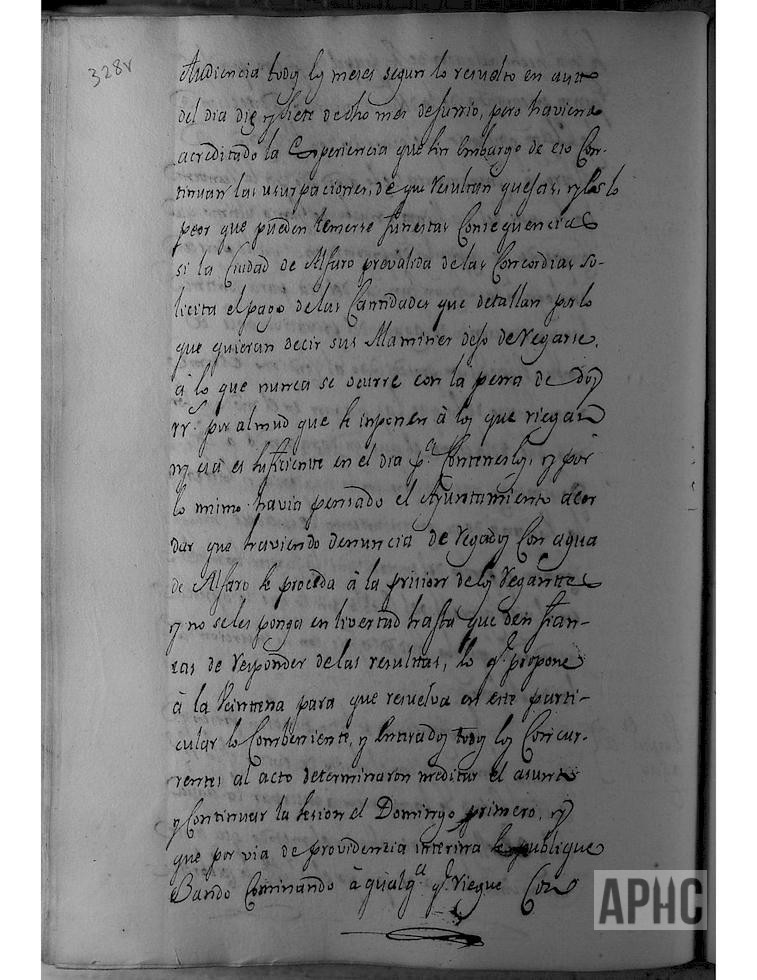 328v
Audiencia todos los meses segun lo resuelto en auto
del dia diez y siete de dho mes de Junio, pero haviendo
acreditado la Experiencia que sin Embargo de eso Con-
tinuan las usurpaciones, de que resultan quejas, y es lo
peor que pueden temerse funestas Consequencias
si la Ciudad de Alfaro prevalida de las Concordias so-
licita el pago de las Cantidades que detallan por lo
que quieran decir sus Alamines dejo de Regarse,
à lo que nunca se ocurre con la pena de dos
rrs. por almud que se inponen à los que riegan
ni esta es suficiente en el dia pa. Contenerlos, y por
lo mimo havia pensado el Ayuntamiento acor
dar que haviendo denuncia de Regados Con agua
de Alfaro se proceda à la prision de los Regantes
y no se les ponga en livertad hasta que den fian-
zas de Responder de las resultas, lo q.e propone
à la Veintena para que resuelva en este parti-
cular lo Combeniente, y Enterados todos los Concur-
rentes al acto determinaron meditar el asunto
y Continuar la sesion el Domingo primero, y
que por via de providenzia interina se publique
Bando Cominando à qualq.a q.e Riegue Con
APHC